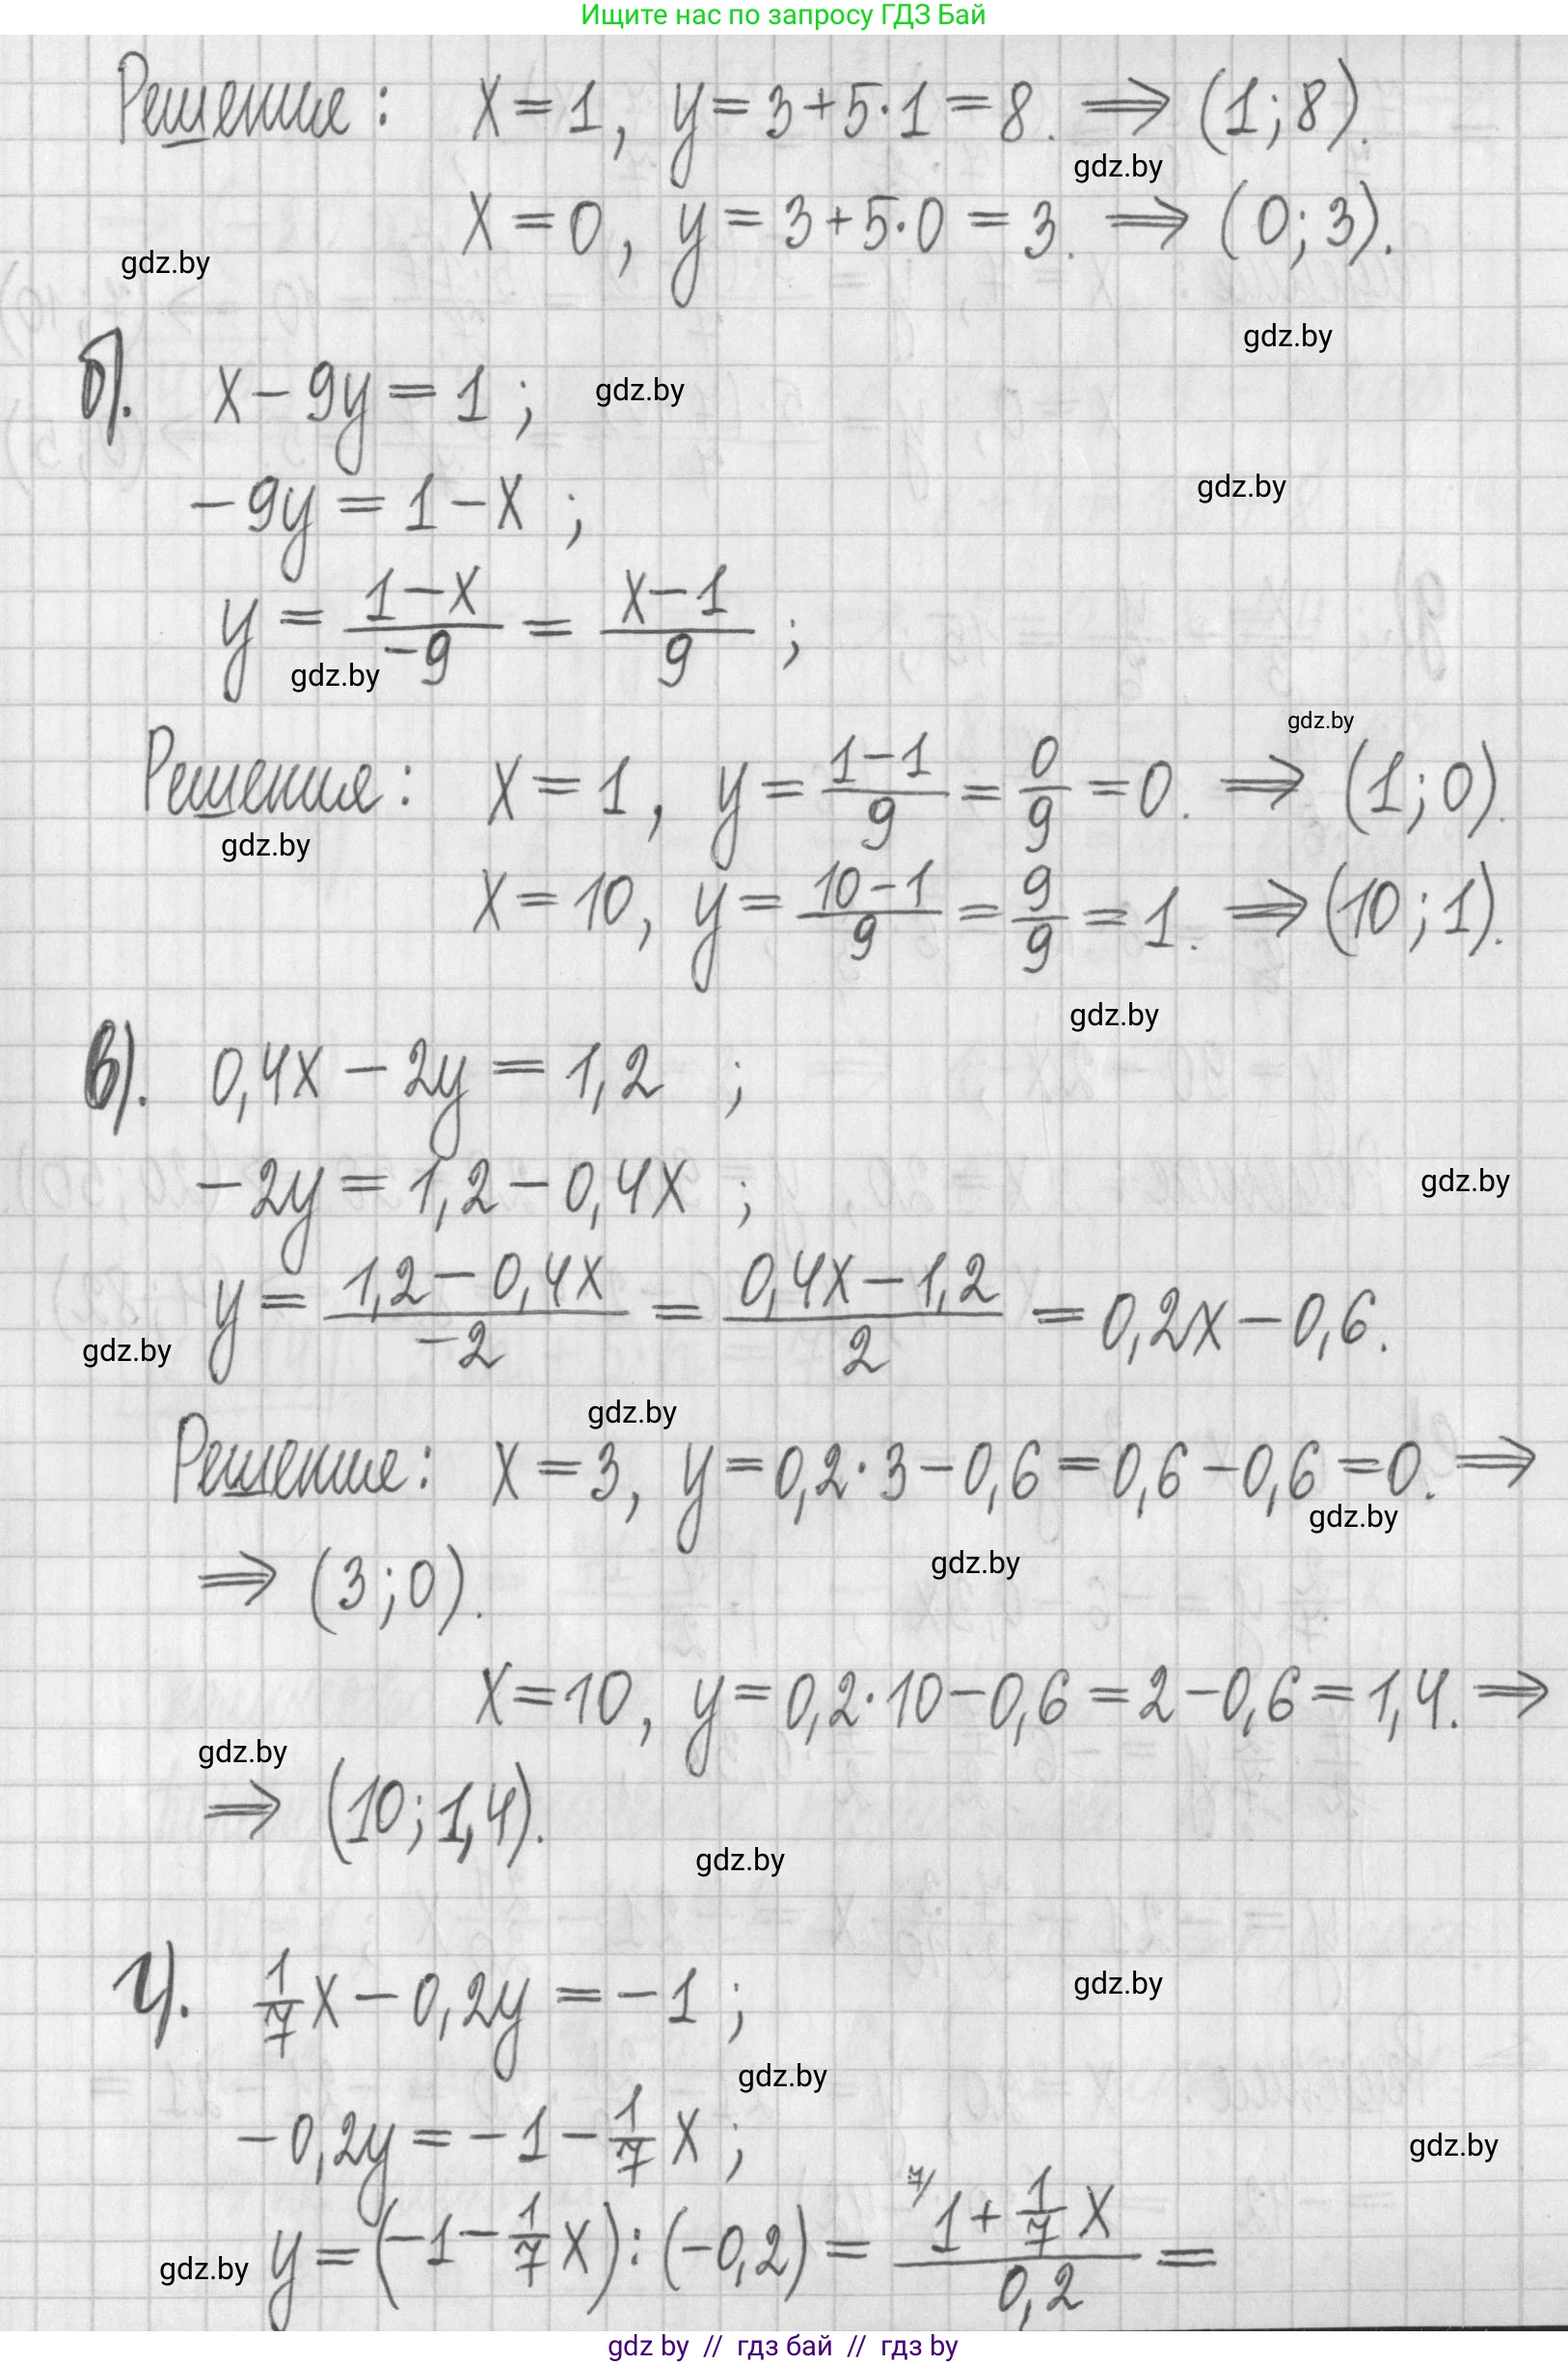 Ищите нас по запросу ГДЗ Бай
Решение: x = 1, y = 3 + 5·1 = 8. ⇒ (1; 8).
gdz.by
x = 0, y = 3 + 5·0 = 3. ⇒ (0; 3).
gdz.by
gdz.by
б). x − 9y = 1 ;
gdz.by
gdz.by
−9y = 1 − x ;
y = (1 − x)/(−9) = (x − 1)/9 ;
gdz.by
gdz.by
Решения: x = 1, y = (1 − 1)/9 = 0/9 = 0. ⇒ (1; 0).
gdz.by
x = 10, y = (10 − 1)/9 = 9/9 = 1. ⇒ (10; 1).
gdz.by
в). 0,4x − 2y = 1,2 ;
−2y = 1,2 − 0,4x ;
gdz.by
y = (1,2 − 0,4x)/(−2) = (0,4x − 1,2)/2 = 0,2x − 0,6.
gdz.by
gdz.by
Решение: x = 3, y = 0,2·3 − 0,6 = 0,6 − 0,6 = 0. ⇒
gdz.by
gdz.by
⇒ (3; 0).
x = 10, y = 0,2·10 − 0,6 = 2 − 0,6 = 1,4. ⇒
gdz.by
⇒ (10; 1,4).
gdz.by
г). 1/7 x − 0,2y = −1 ;
gdz.by
gdz.by
−0,2y = −1 − 1/7 x ;
gdz.by
y = (−1 − 1/7 x) : (−0,2) = (7/ 1 + 1/7 x)/0,2 =
gdz.by
gdz by // гдз бай // гдз by